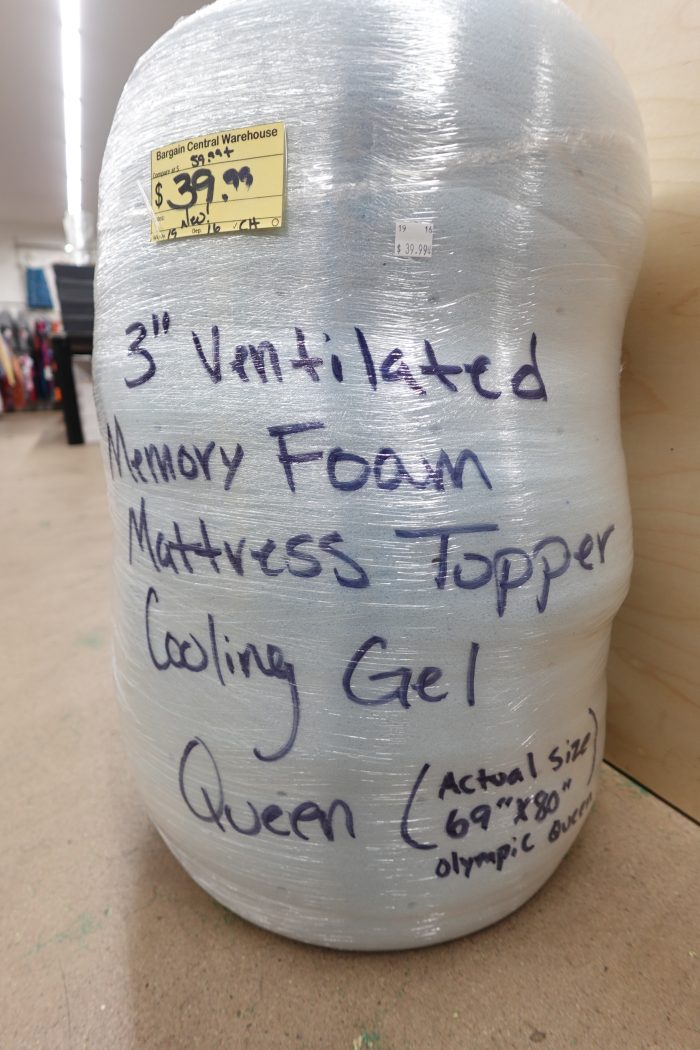 Bargain Central Warehouse
Compare at $ 59.99+
$ 39.99
New!
19 Dep. 16 CH
19 16
$ 39.99
3" Ventilated
Memory Foam
Mattress Topper
Cooling Gel
Queen (Actual Size
69" X 80"
Olympic Queen)